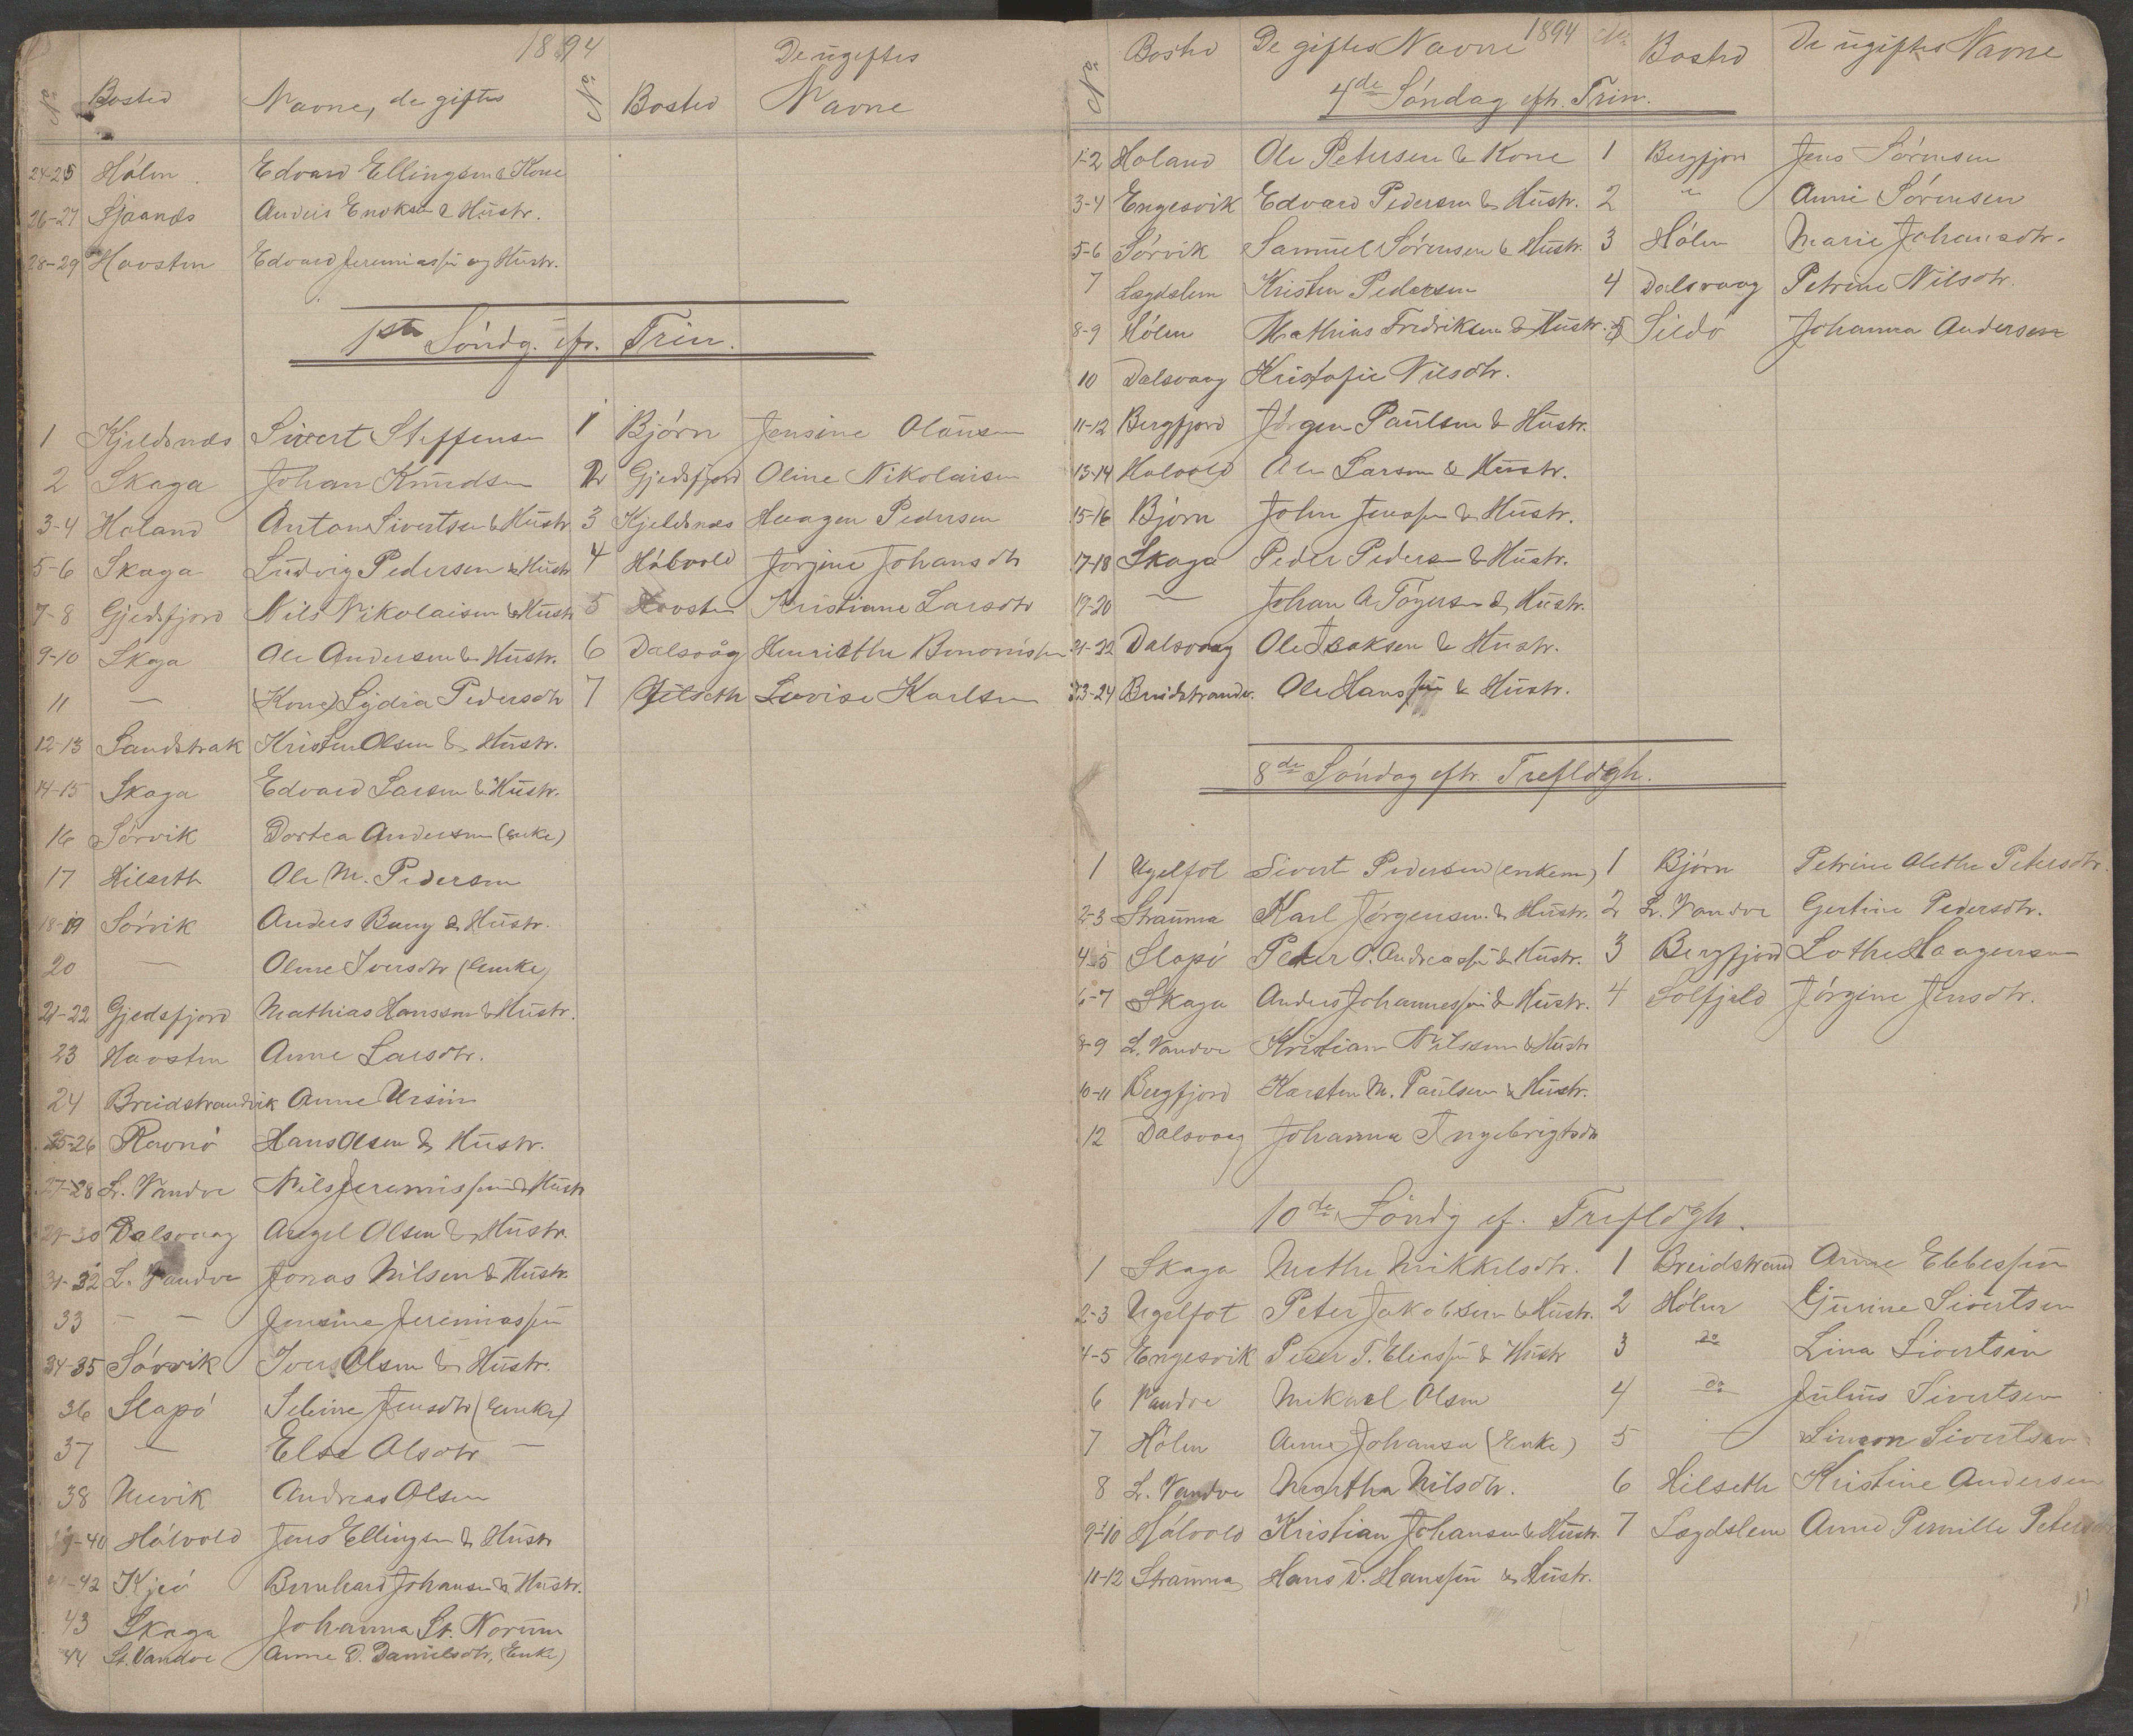 1894
De ugiftes
No. Bosted Navne, de giftes No. Bosted Navne
24-25 Hólm Edvard Ellingsen & Kone
26-27 Sjaanæs Anders Enoksen & Hustr.
28-29 Havsten Edvard Jeremiassen og Hustr.
1ste Söndg. efr. Trin.
1 Kjeldsnæs Sivert Steffensen 1 Bjórn Jensine Olausen
2 Skaga Johan Knudsen 2 Gjedsfjord Oline Nikolaisen
3-4 Holand Anton Sivertsen & Hustr 3 Kjeldsnæs Haagen Pedersen
5-6 Skaga Ludvig Pedersen & Hustr 4 Hólvold Jørgine Johansdtr
7-8 Gjedsfjord Nils Nikolaisen & Hustr 5 Havsten Kristiane Larsdtr
9-10 Skaga Ole Andersen & Hustr. 6 Dalsvåg Henriethe Benonissen
11 — (Kone) Lydia Pedersdtr 7 Hilseth Lovise Karlsen
12-13 Sandstrak Kristen Olsen & Hustr.
14-15 Skaga Edvard Larsen & Hustr.
16 Sörvik Dortea Andersen (Enke)
17 Hilseth Ole M. Pedersen
18-19 Sórvik Anders Bang & Hustr.
20 — Oline Iversdtr (Enke)
21-22 Gjedsfjord Mathias Hanssen & Hustr.
23 Havsten Anne Larsdtr.
24 Breidstrandvik Anne Ursin
25-26 Ravnó Hans Olsen & Hustr.
27-28 L. Vandve Nils Jeremissen & Hustr
29-30 Dalsvaag Axgel Olsen & Hustr.
31-32 L. Vandve Jonas Nilsen & Hustr.
33 — — Jensine Jeremiassen
34-35 Sórvik Iver Olsen & Hustr.
36 Slapó Seline Jensdtr (Enke)
37 — Else Olsdtr —
38 Nevik Andreas Olsen
39-40 Hólvold Jens Ellingsen & Hustr
41-42 Kjeó Bernhard Johansen & Hustr.
43 Skaga Johanna St. Norum
44 St. Vandve Anne D. Danielsdtr, (Enke)
1894
No. Bosted De giftes Navne No. Bosted De ugiftes Navne
4de Söndag eftr. Trin.
1-2 Holand Ole Petersen & Kone 1 Bergfjor Jens Sórensen
3-4 Engesvik Edvard Pedersen & Hustr. 2 " Anne Sórensen
5-6 Sórvik Samuel Sórensen & Hustr. 3 Hólm Marie Johansdtr.
7 Lægdslem Kristen Pedersen 4 Dalsvaag Petrine Nilsdtr.
8-9 Hólm Mathias Fredriksen & Hustr. 5 Sildó Johanna Andersen
10 Dalsvaag Kristofie Nilsdtr.
11-12 Bergfjord Jörgen Paulsen & Hustr.
13-14 Holvold Ole Larsen & Hustr.
15-16 Bjórn John Jenssen & Hustr.
17-18 Skaga Peder Pedersen & Hustr.
19-20 — Johan A. Tógersen & Hustr.
21-22 Dalsvaag Ole Isaksen & Hustr.
23-24 Breidstrandv. Ole Hanssen & Hustr.
8de Söndag eftr. Trefldgh.
1 Ugelfot Sivert Pedersen (enkem) 1 Bjórn Petrine Alethe Petersdtr.
2-3 Strauma Karl Jórgensen & Hustr. 2 L. Vandve Gertine Pedersdtr.
4-5 Slapó Peder O. Andreassen & Hustr. 3 Bergfjord Lothe Haagensen
6-7 Skaga Anders Johannessen & Hustr. 4 Solfjeld Jórgine Jensdtr.
8-9 L. Vandve Kristian Nilssen & Hustr
10-11 Bergfjord Karsten M. Paulsen & Hustr.
12 Dalsvaag Johanna Ingebrigtsdtr
10de Söndg ef. Trefldgh.
1 Skaga Methe Mikkelsdtr. 1 Breidstrand Anne Ebbessen
2-3 Ugelfot Peter Jakobsen & Hustr. 2 Hólm Gjurine Sivertsen
4-5 Engesvik Peder T. Eliassen & Hustr 3 do Lina Sivertsen
6 Vandve Mikael Olsen 4 do Julius Sivertsen
7 Hólm Anne Johansen (Enke) 5 — Simon Sivertsen
8 L. Vandve Martha Nilsdtr. 6 Hilseth Kristine Andersen
9-10 Hólvold Kristian Johansen & Hustr. 7 Lægdslem Anne Pernille Petersdtr
11-12 Strauma Hans D. Hanssen & Hustr.